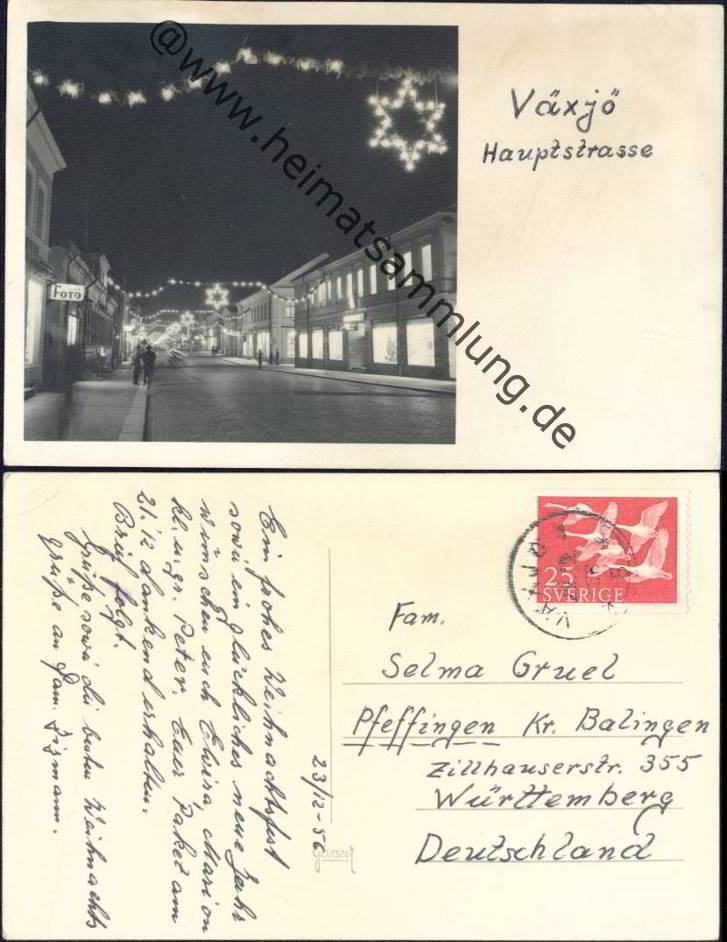 @www.heimatsammlung.de
Växjö
Hauptstrasse
FOTO
Ein frohes Weihnachtsfest
sowie ein glückliches neue Jahr
wünschen euch Elvira, Marion
kl. u. gr. Peter. Euer Paket am
21.12 dankend erhalten.
Brief folgt.
Grüße sowie die besten Weihnachts
grüße an Fam.
23/12-56
Gevaert
25
SVERIGE
Fam.
Selma Gruel
Pfeffingen Kr. Balingen
Zillhauserstr. 355
Württemberg
Deutschland